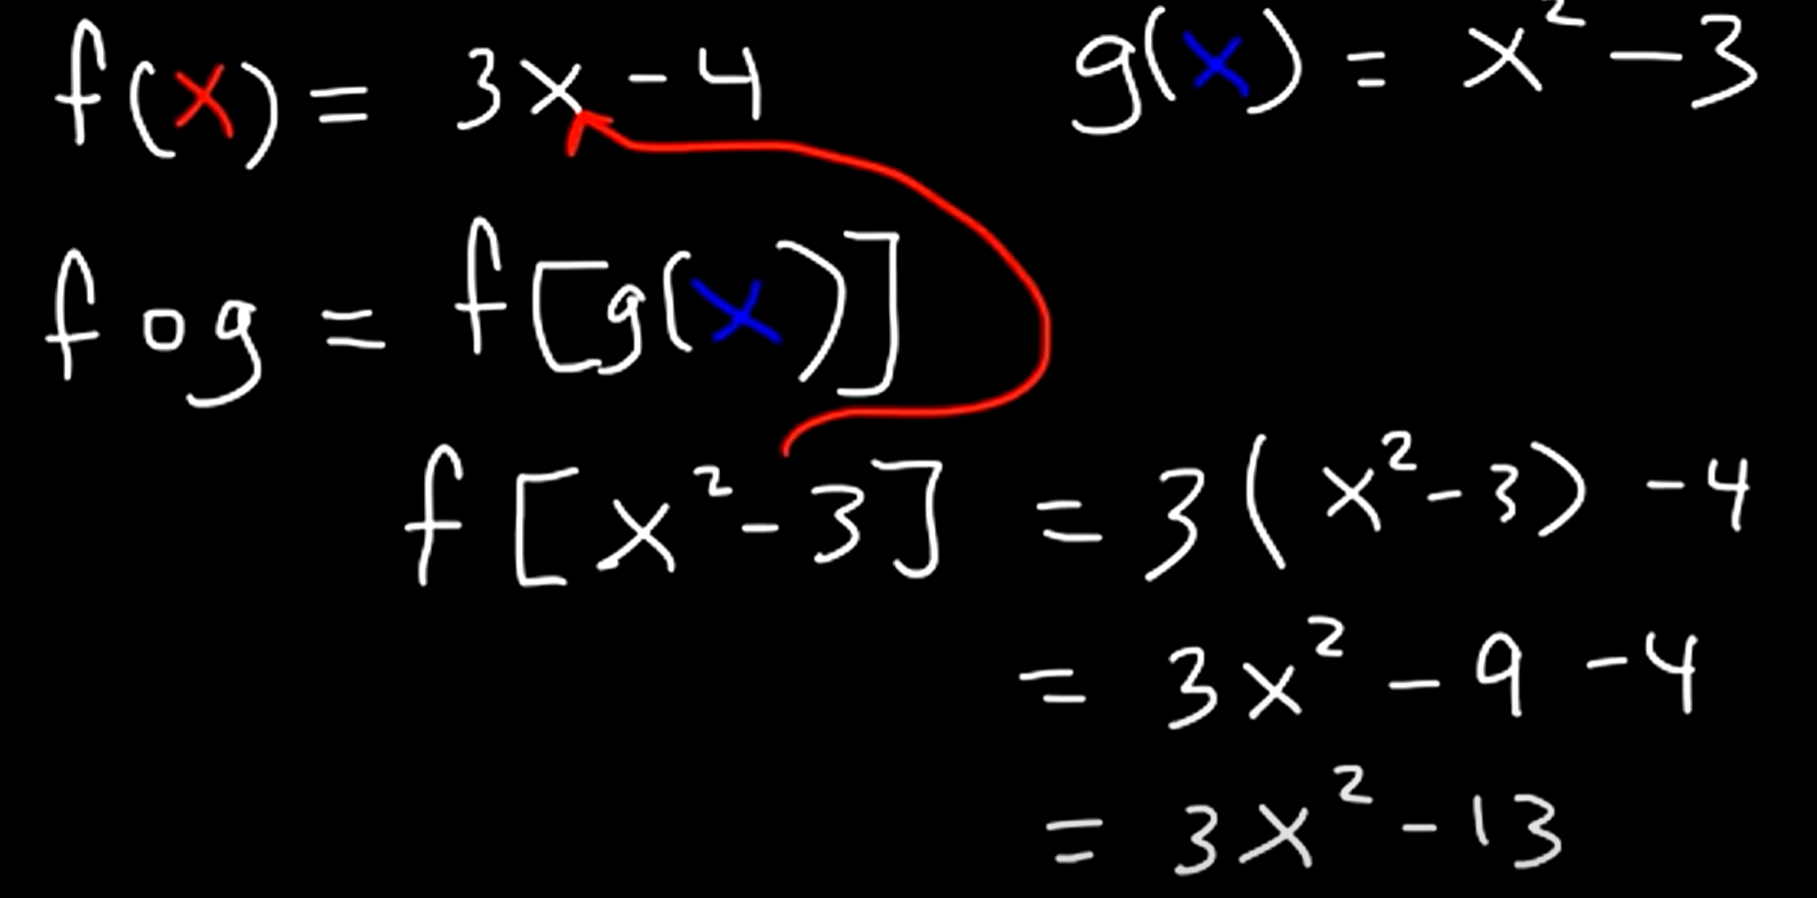 f(x) = 3x - 4 g(x) = x² - 3
f o g = f[g(x)]
f[x² - 3] = 3(x² - 3) - 4
= 3x² - 9 - 4
= 3x² - 13